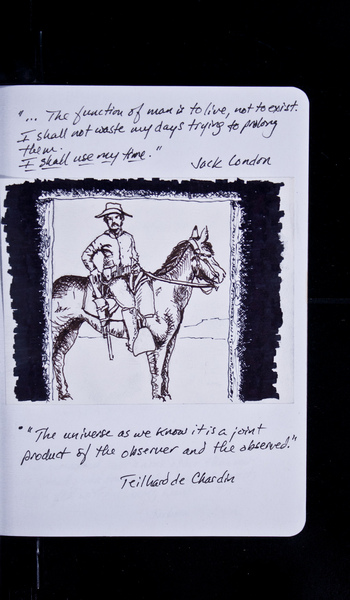 "... The function of man is to live, not to exist.
I shall not waste my days trying to prolong
them.
I shall use my time."
Jack London
"The universe as we know it is a joint
product of the observer and the observed."
Teilhard de Chardin